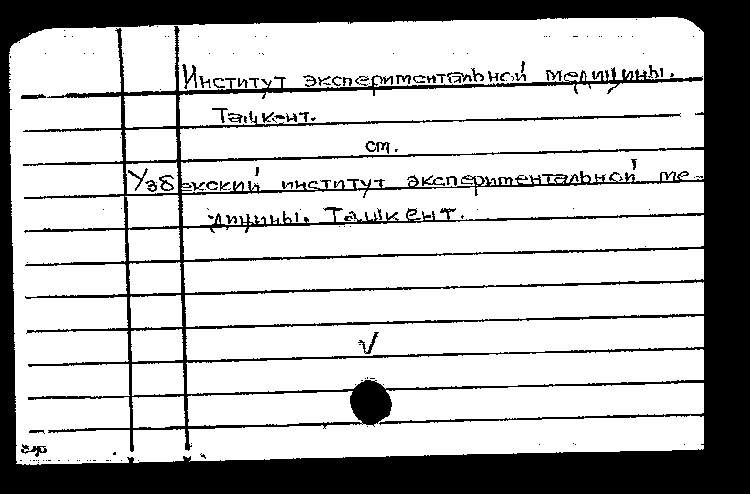 Институт экспериментальной медицины.
Ташкент.
ст.
Узбекский институт экспериментальной ме-
дицины. Ташкент.